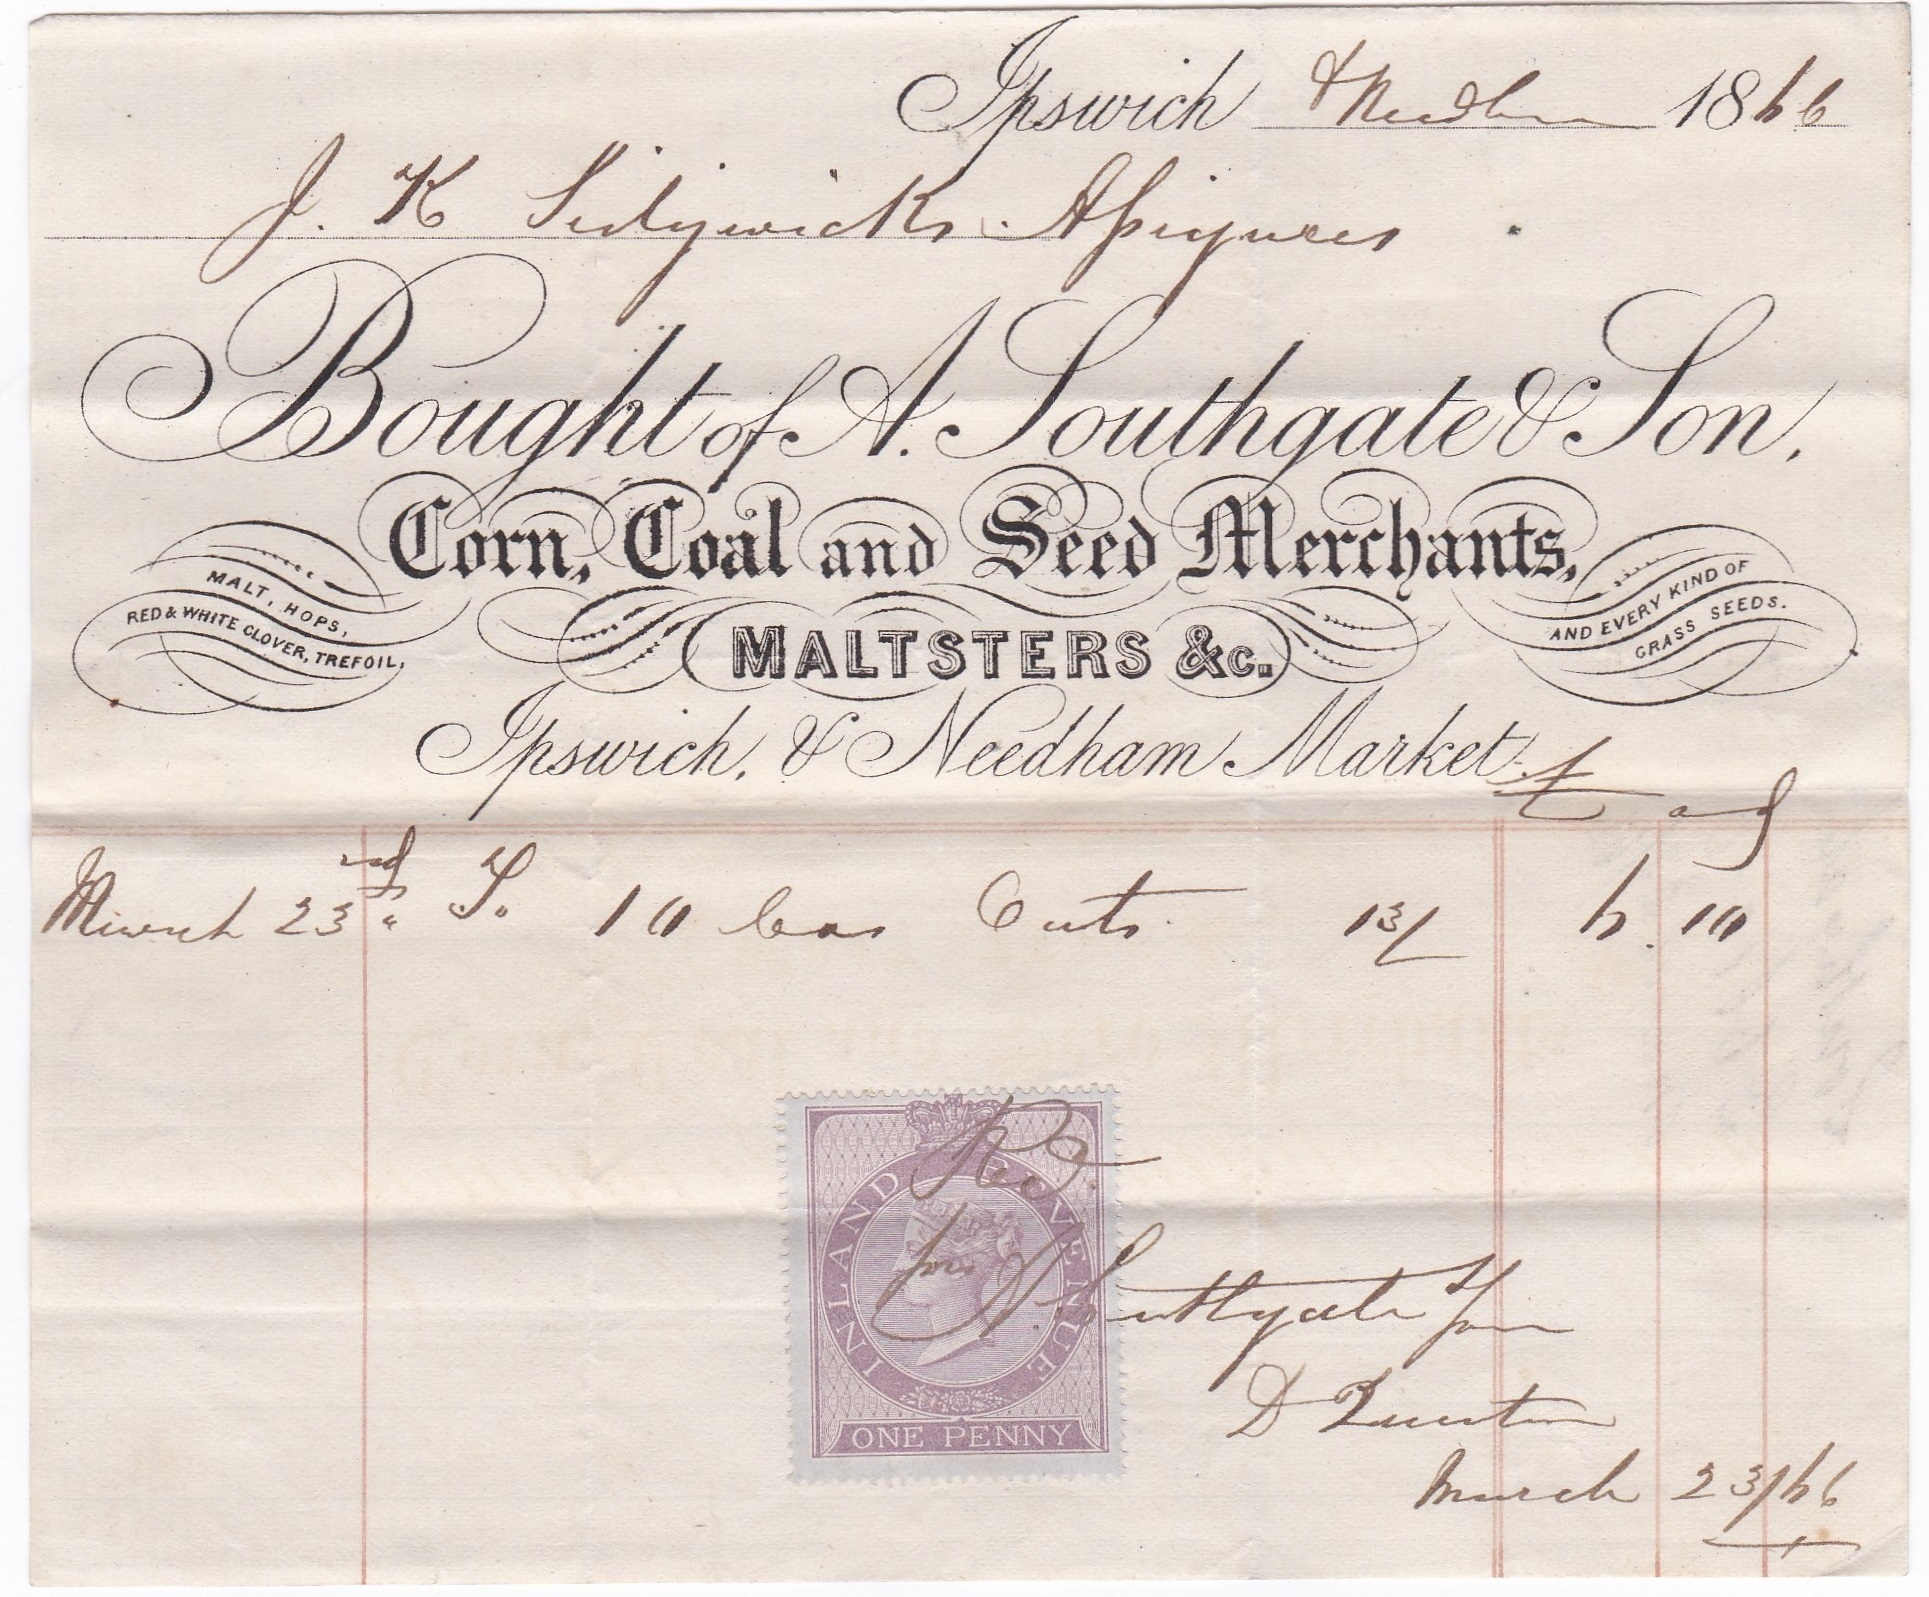 Ipswich & Needham 1866
J. K Sidgwicks Assignees
Bought of A. Southgate & Son,
Corn, Coal and Seed Merchants,
MALT, HOPS,
RED & WHITE CLOVER, TREFOIL,
MALTSTERS &c.
AND EVERY KIND OF
GRASS SEEDS.
Ipswich, & Needham Market.
£ s d
March 23rd To 10 Cos Oats 13/ 6.10
INLAND REVENUE
ONE PENNY
Recd
for A. Southgate & Son
D
March 23/66